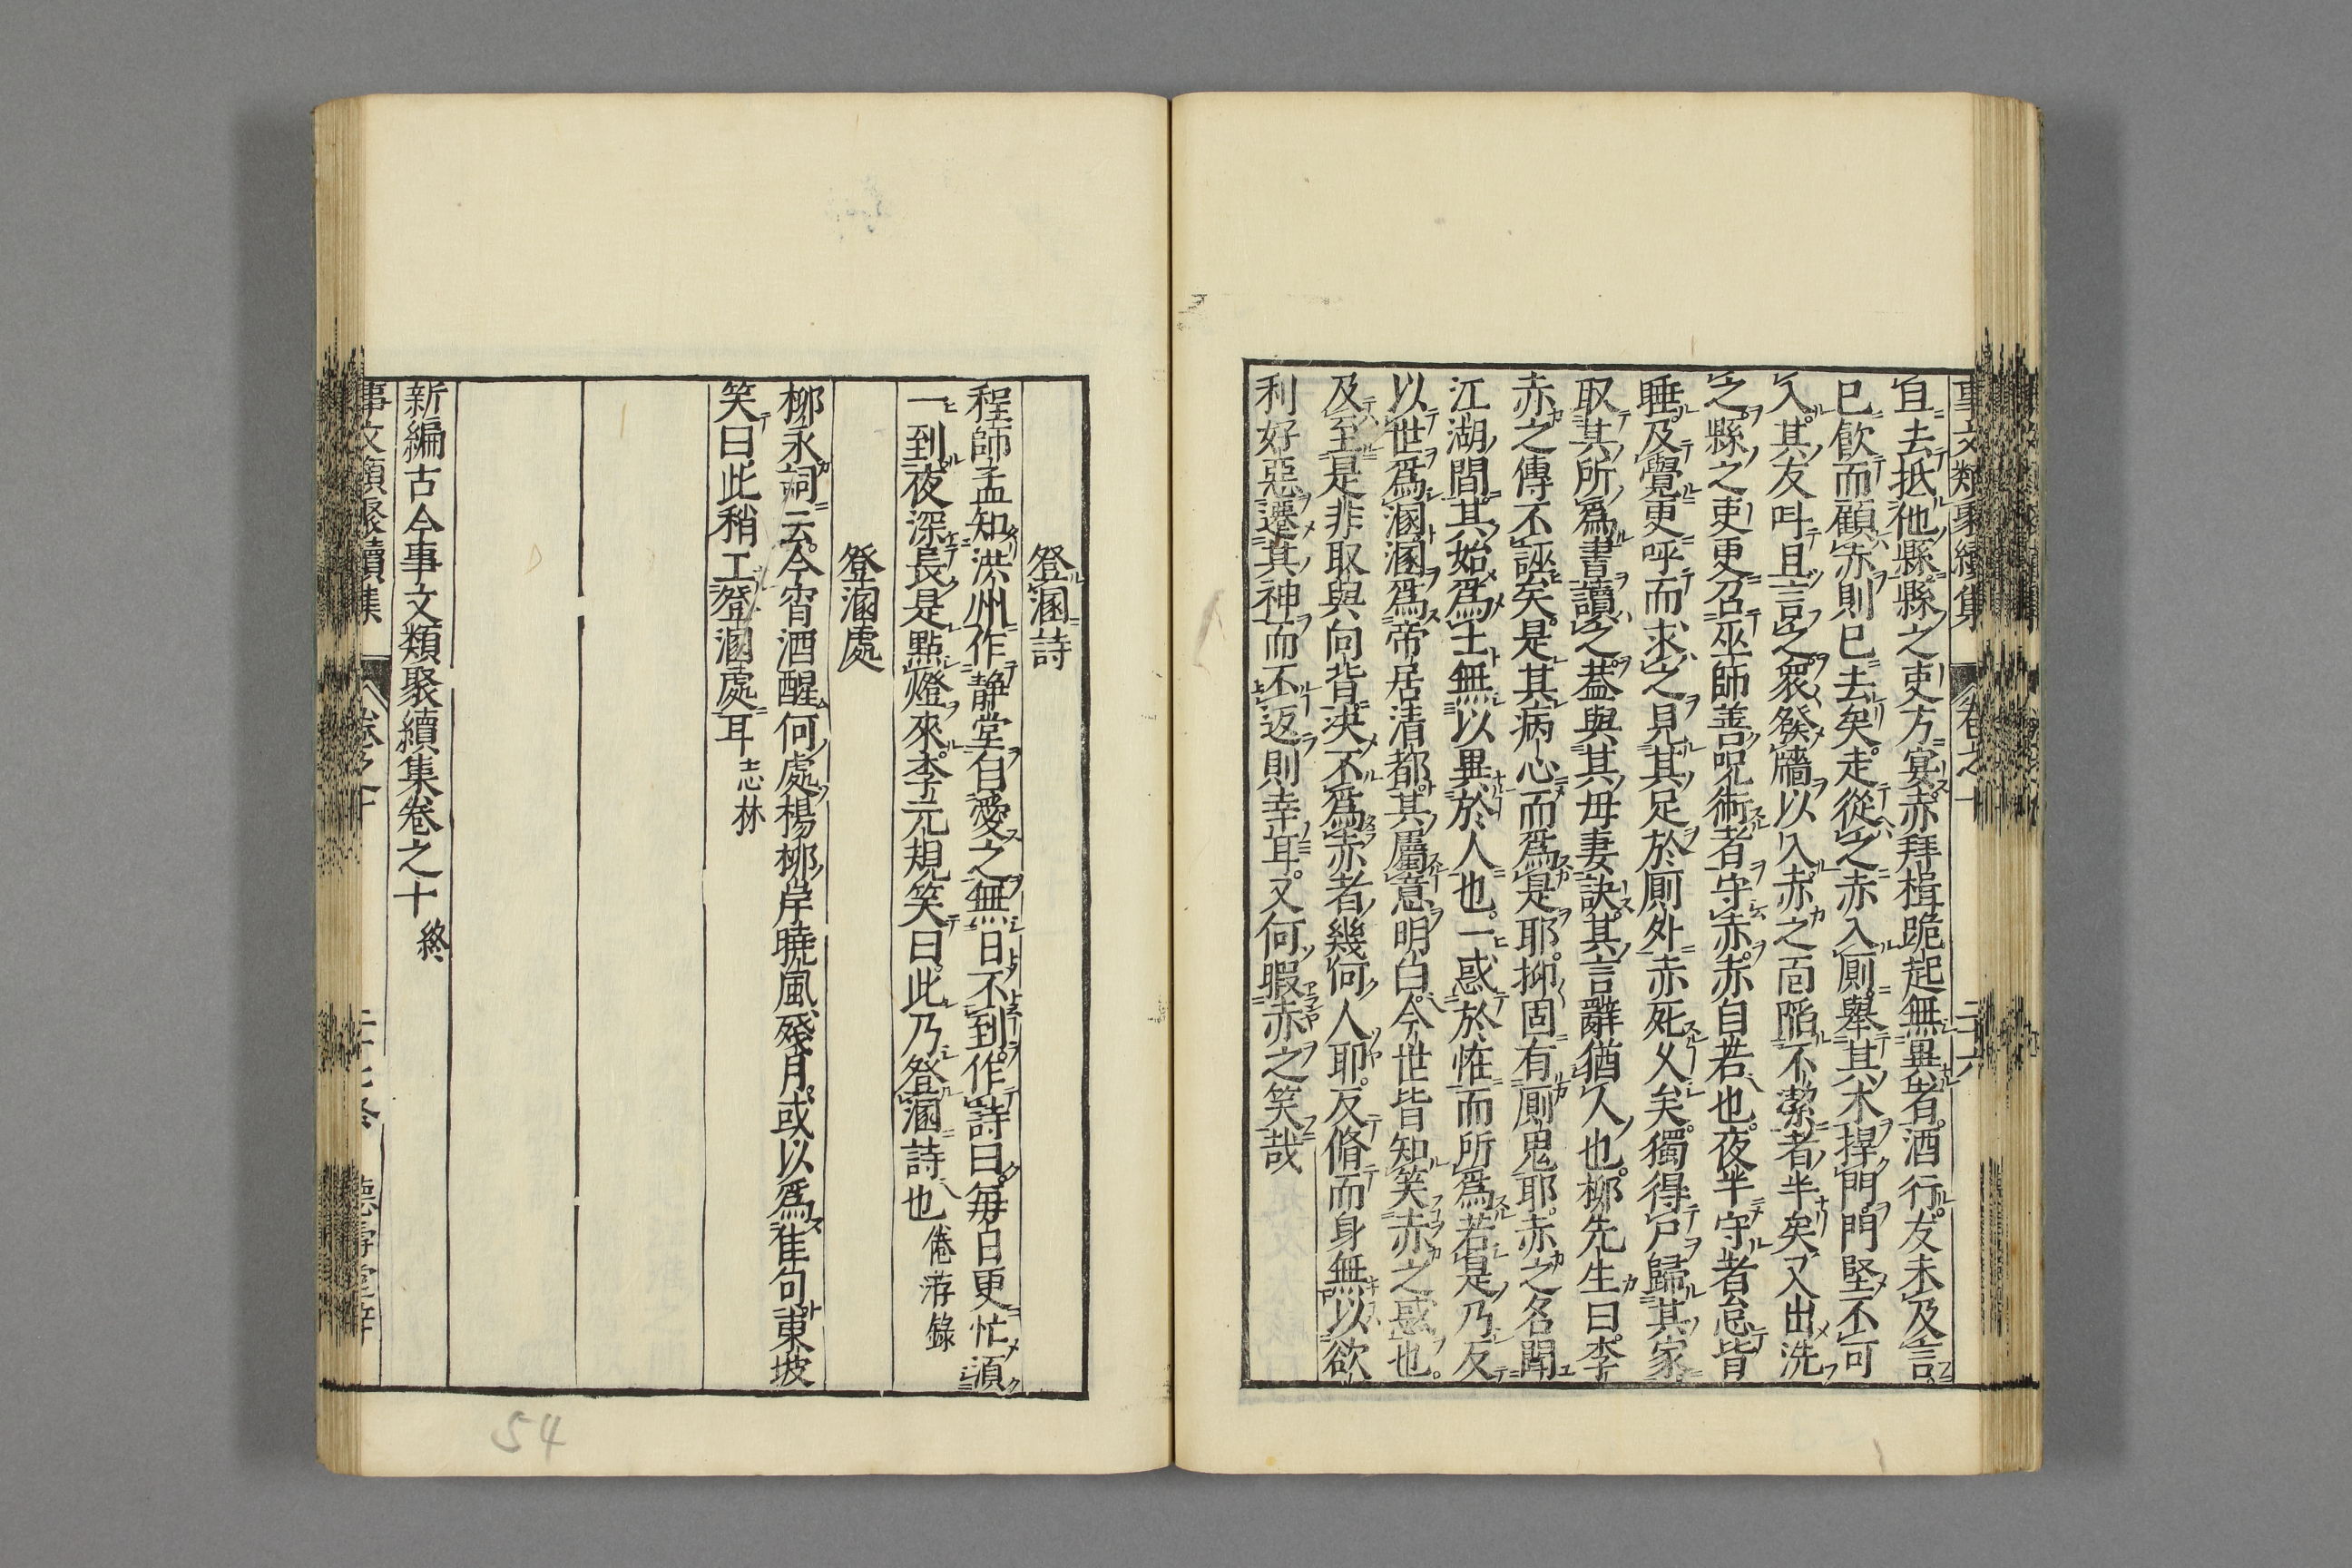 事文類聚續集
卷之十
二十六
宜去抵他縣縣之吏方宴赤拜揖跪起無異者酒行友未及言
已飮而顧赤則已去矣走從之赤入厠舉其木捍門門堅不可
入其友叫且言之衆發牆以入赤之面陷不潔者半矣又出洗
之縣之吏更召巫師善呪術者守赤赤自若也夜半守者怠皆
睡及覺更呼而求之見其足於厠外赤死久矣獨得尸歸其家
取其所爲書讀之葢與其母妻訣其言辭猶人也柳先生曰李
赤之傳不誣矣是其病心而爲是耶抑固有厠鬼耶赤之名聞
江湖間其始爲士無以異於人也一惑於恠而所爲若是乃反
以世爲溷溷爲帝居清都其屬意明白今世皆知笑赤之惑也
及至是非取與向背决不爲赤者幾何人耶反脩而身無以欲
利好惡遷其神而不返則幸耳又何暇赤之笑哉
登溷詩
程師孟知洪州作静堂自愛之無日不到作詩曰每日更忙湏
一到夜深長是點燈來李元規笑曰此乃登溷詩也 倦游錄
登溷處
柳永詞云今宵酒醒何處楊柳岸曉風殘月或以爲佳句東坡
笑曰此稍工登溷處耳 志林
新編古今事文類聚續集卷之十 終
事文類聚續集
卷之十
54